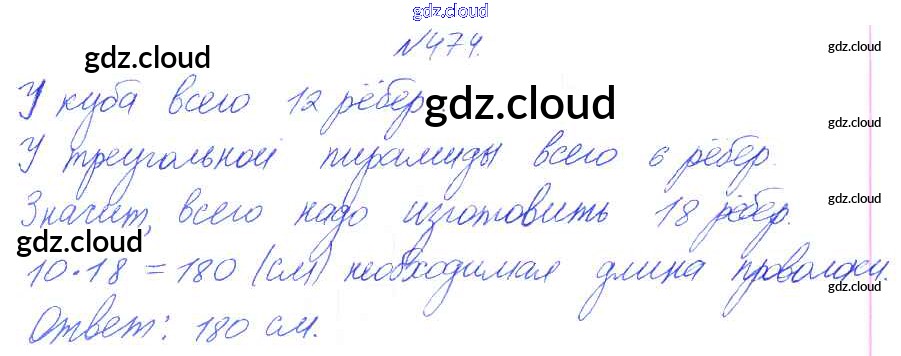 gdz.cloud
№474.
gdz.cloud
gdz.cloud
У куба всего 12 рёбер
gdz.cloud
gdz.cloud
У треугольной пирамиды всего 6 рёбер.
Значит, всего надо изготовить 18 рёбер.
gdz.cloud
gdz.cloud
10·18 = 180 (см) необходимая длина проволоки.
gdz.cloud
Ответ: 180 см.